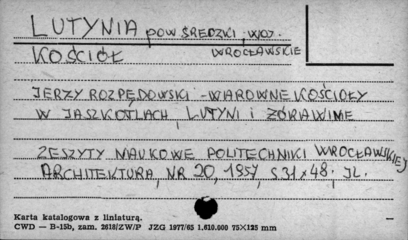 LUTYNIA pow ŚREDZKI, woj.
WROCŁAWSKIE
KOŚCIÓŁ
JERZY ROZPĘDOWSKI - WAROWNE KOŚCIOŁY
W JASZKOTLACH, LUTYNI i ŻÓRAWINIE
ZESZYTY NAUKOWE POLITECHNIKI WROCŁAWSKIEJ
ARCHITEKTURA, NR 20, 1957, S 31 x 48. IL.
Karta katalogowa z liniaturą.
CWD — B-15b, zam. 2618/ZW/P JZG 1977/65 1.610.000 75×125 mm